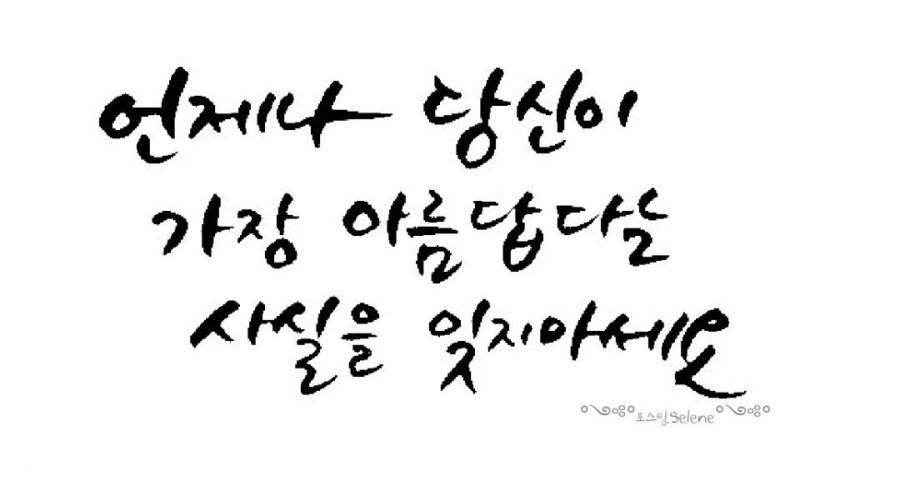 언제나 당신이
가장 아름답다는
사실을 잊지마세요
포스팀.Selene